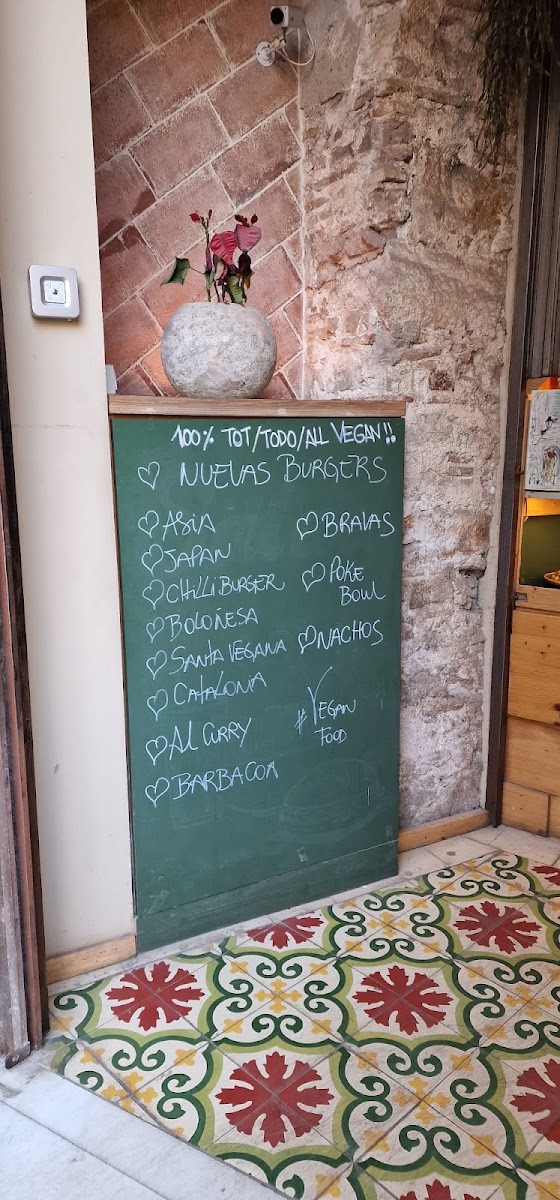 100% TOT/TODO/ALL VEGAN!!
NUEVAS BURGERS
ASIA
JAPAN
CHILLI BURGER
BOLOÑESA
SANTA VEGANA
CATALONIA
AL CURRY
BARBACOA
BRAVAS
POKE
BOWL
NACHOS
#VEGAN
FOOD